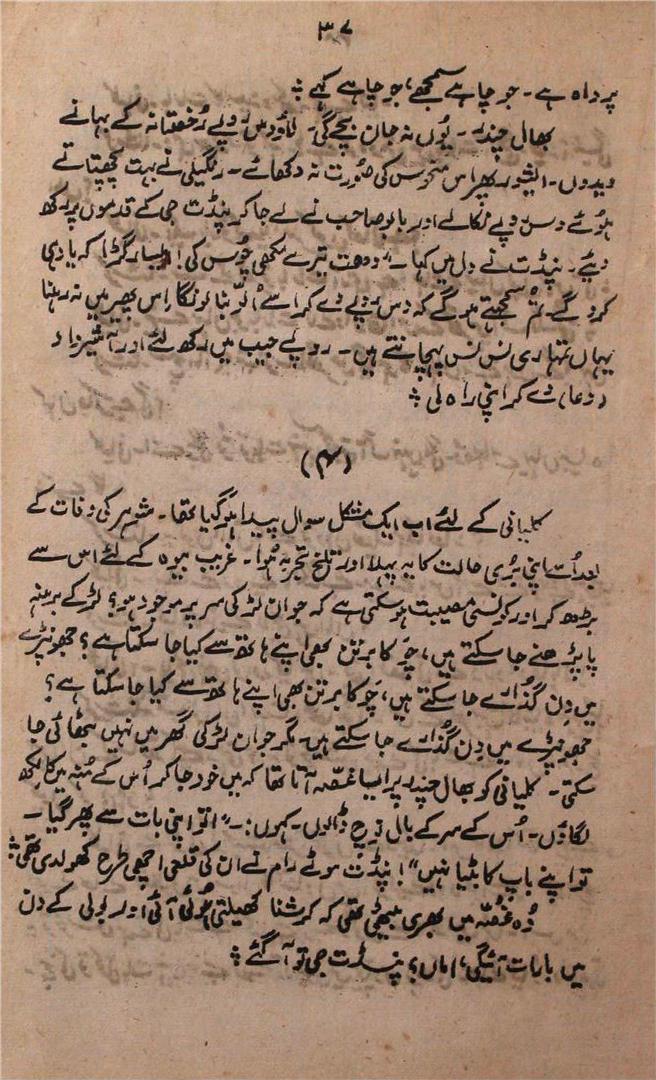 ۳۷
پرواہ ہے۔ جو چاہے سمجھے، جو چاہے کہے ؞
بھال چندر۔ یوں نہ جان بچے گی۔ لاؤ دس روپے رخصتانہ کے بہانے
دیدوں۔ ایشور پھر اس منحوس کی صورت نہ دکھائے۔ رنگیلی نے بہت پچھتاتے
ہوئے دس روپے نکالے اور بابو صاحب نے لے جا کر پنڈت جی کے قدموں پر رکھ
دیئے۔ پنڈت نے دل میں کہا۔ "دھت تیرے مکھی چوس کی! ایسا رگڑا کہ یاد ہی
کرو گے۔ تم سمجھتے ہو گے کہ دس روپے دے کر اسے اُلّو بنا لونگا۔ اس پھیر میں نہ رہنا
یہاں تمہاری نس نس پہچانتے ہیں۔ روپے جیب میں رکھ لئے اور آشیرواد
(دعا) دے کر اپنی راہ لی ؞
(۴)
کلیانی کے لئے اب ایک مشکل سوال پیدا ہو گیا تھا۔ شوہر کی وفات کے
بعد اُسے اپنی بُری حالت کا یہ پہلا اور تلخ تجربہ ہُوا۔ غریب بیوہ کے لئے اس سے
بڑھ کر اور کونسی مصیبت ہو سکتی ہے کہ جوان لڑکی سر پر موجود ہو؟ لڑکے برہنہ
پا پڑھنے جا سکتے ہیں، چوکا برتن بھی اپنے ہاتھ سے کیا جا سکتا ہے؟ جھونپڑے
میں دِن گذارے جا سکتے ہیں، چَوکا برتن بھی اپنے ہاتھ سے کیا جا سکتا ہے؟
جھونپڑے میں دن گُذارے جا سکتے ہیں۔ مگر جوان لڑکی گھر میں نہیں بٹھائی جا
سکتی۔ کلیانی کو بھال چندر پر ایسا غصّہ آتا تھا کہ میں خود جا کر اُس کے مُنہ میں کالکھ
لگاؤں۔ اُس کے سر کے بال نوچ ڈالوں۔ کہوں:۔ "تو اپنی بات سے پھر گیا۔
تو اپنے باپ کا بیٹا نہیں"! پنڈت موٹے رام نے ان کی قلعی اچھی طرح کھولدی تھی ؞
وُہ غُصّہ میں بھری بیٹھی تھی کہ کرشنا کھیلتی ہُوئی آئی اور بولی کے دن
میں بارات آئیگی، اماں؟ پنڈت جی تو آ گئے ؞